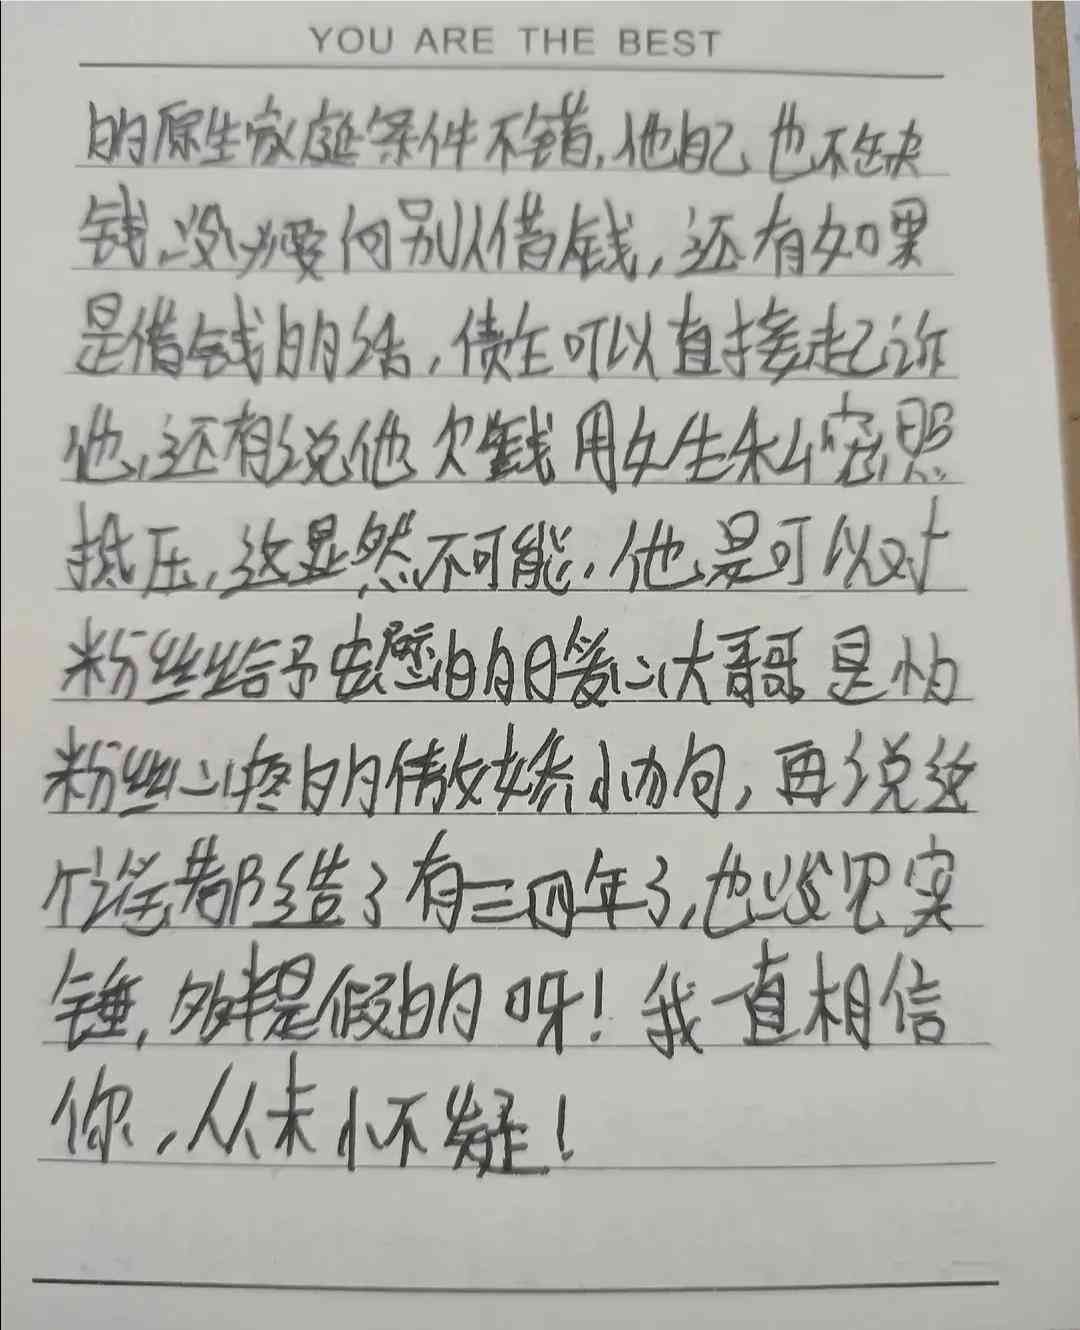 YOU ARE THE BEST
的原生家庭条件不错,他自己也不缺
钱,没必要向别人借钱,还有如果
是借钱的话,债主可以直接起诉
他,还有说他欠钱用女生私密照
抵压,这显然不可能,他是可以对
粉丝给予庇的日爱心大哥是怕
粉丝心疼的傲娇小方向,再说这
个谣都造了有三四年了,也没见实
锤,多半是假的呀!我一直相信
你,从未怀疑!